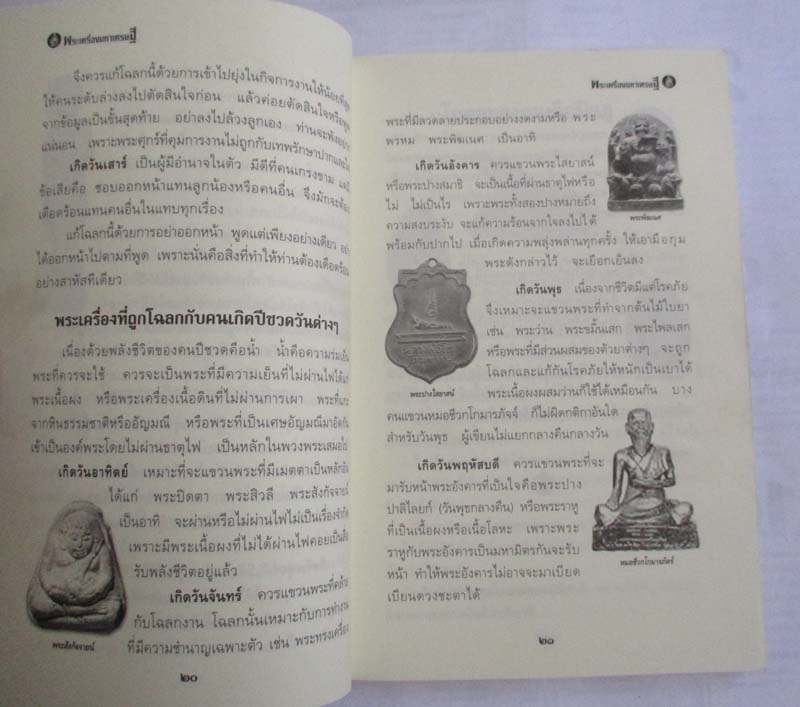 พระเครื่องมหาเศรษฐี
จึงควรแก้โฉลกนี้ด้วยการเข้าไปยุ่งในกิจการงานให้น้อยที่สุด
ให้คนระดับล่างลงไปตัดสินใจก่อน แล้วค่อยตัดสินใจหรือพูด
จากข้อมูลเป็นขั้นสุดท้าย อย่าลงไปล้วงลูกเอง ท่านจะพังอย่าง
แน่นอน เพราะพระศุกร์ที่คุมการงานไม่ถูกกับเทพรักษาปากและ
เกิดวันเสาร์ เป็นผู้มีอำนาจในตัว มีดีที่คนเกรงขาม แต่มี
ข้อเสียคือ ชอบออกหน้าแทนลูกน้องหรือคนอื่น จึงมักจะต้อง
เดือดร้อนแทนคนอื่นในแทบทุกเรื่อง
แก้โฉลกนี้ด้วยการอย่าออกหน้า พูดแต่เพียงอย่างเดียว อย่า
ได้ออกหน้าไปตามที่พูด เพราะนั่นคือสิ่งที่ทำให้ท่านต้องเดือดร้อน
อย่างสาหัสทีเดียว
พระเครื่องที่ถูกโฉลกกับคนเกิดปีชวดวันต่างๆ
เนื่องด้วยพลังชีวิตของคนปีชวดคือน้ำ น้ำคือความร่มเย็น
พระที่ควรจะใช้ ควรจะเป็นพระที่มีความเย็นที่ไม่ผ่านไฟได้แก่
พระเนื้อผง หรือพระเครื่องเนื้อดินที่ไม่ผ่านการเผา พระที่แกะ
จากหินธรรมชาติหรืออัญมณี หรือพระที่เป็นเศษอัญมณีมาอัดกัน
เข้าเป็นองค์พระโดยไม่ผ่านธาตุไฟ เป็นหลักในพวงพระเสมอไป
เกิดวันอาทิตย์ เหมาะที่จะแขวนพระที่มีเมตตาเป็นหลักอัน
ได้แก่ พระปิดตา พระสิวลี พระสังกัจจายน์
เป็นอาทิ จะผ่านหรือไม่ผ่านไฟไม่เป็นเรื่องจำกัด
เพราะมีพระเนื้อผงที่ไม่ได้ผ่านไฟคอยเป็นสื่อ
รับพลังชีวิตอยู่แล้ว
เกิดวันจันทร์ ควรแขวนพระที่คล้าย
กับโฉลกงาน โฉลกนั้นเหมาะกับการทำงาน
ที่มีความชำนาญเฉพาะตัว เช่น พระทรงเครื่อง
พระสังกัจจายน์
๒๐
พระเครื่องมหาเศรษฐี
พระที่มีลวดลายประกอบอย่างงดงามหรือ พระ
พรหม พระพิฆเนศ เป็นอาทิ
เกิดวันอังคาร ควรแขวนพระไสยาสน์
หรือพระปางสมาธิ จะเป็นเนื้อที่ผ่านธาตุไฟหรือ
ไม่ ไม่เป็นไร เพราะพระทั้งสองปางหมายถึง
ความสงบระงับ จะแก้ความร้อนจากใจลงไปได้
พร้อมกับปากไป เมื่อเกิดความพลุ่งพล่านทุกครั้ง ให้เอามือกุม
พระดังกล่าวไว้ จะเยือกเย็นลง
พระพิฆเนศ
เกิดวันพุธ เนื่องจากชีวิตมีแต่โรคภัย
จึงเหมาะจะแขวนพระที่ทำจากต้นไม้ใบยา
เช่น พระว่าน พระขมิ้นเสก พระไพลเสก
หรือพระที่มีส่วนผสมของตัวยาต่างๆ จะถูก
โฉลกและแก้กันโรคภัยให้หนักเป็นเบาได้
พระเนื้อผงผสมว่านก็ใช้ได้เหมือนกัน บาง
คนแขวนหมอชีวกโกมารภัจจ์ ก็ไม่ผิดกติกาอันใด
สำหรับวันพุธ ผู้เขียนไม่แยกกลางคืนกลางวัน
พระปางไสยาสน์
เกิดวันพฤหัสบดี ควรแขวนพระที่จะ
มารับหน้าพระอังคารที่เป็นใจคือพระปาง
ปาลิไลยก์ (วันพุธกลางคืน) หรือพระราหู
ที่เป็นเนื้อผงหรือเนื้อโลหะ เพราะพระ
ราหูกับพระอังคารเป็นมหามิตรกันจะรับ
หน้า ทำให้พระอังคารไม่อาจจะมาเบียด
เบียนดวงชะตาได้
หมอชีวกโกมารภัจจ์
๒๑